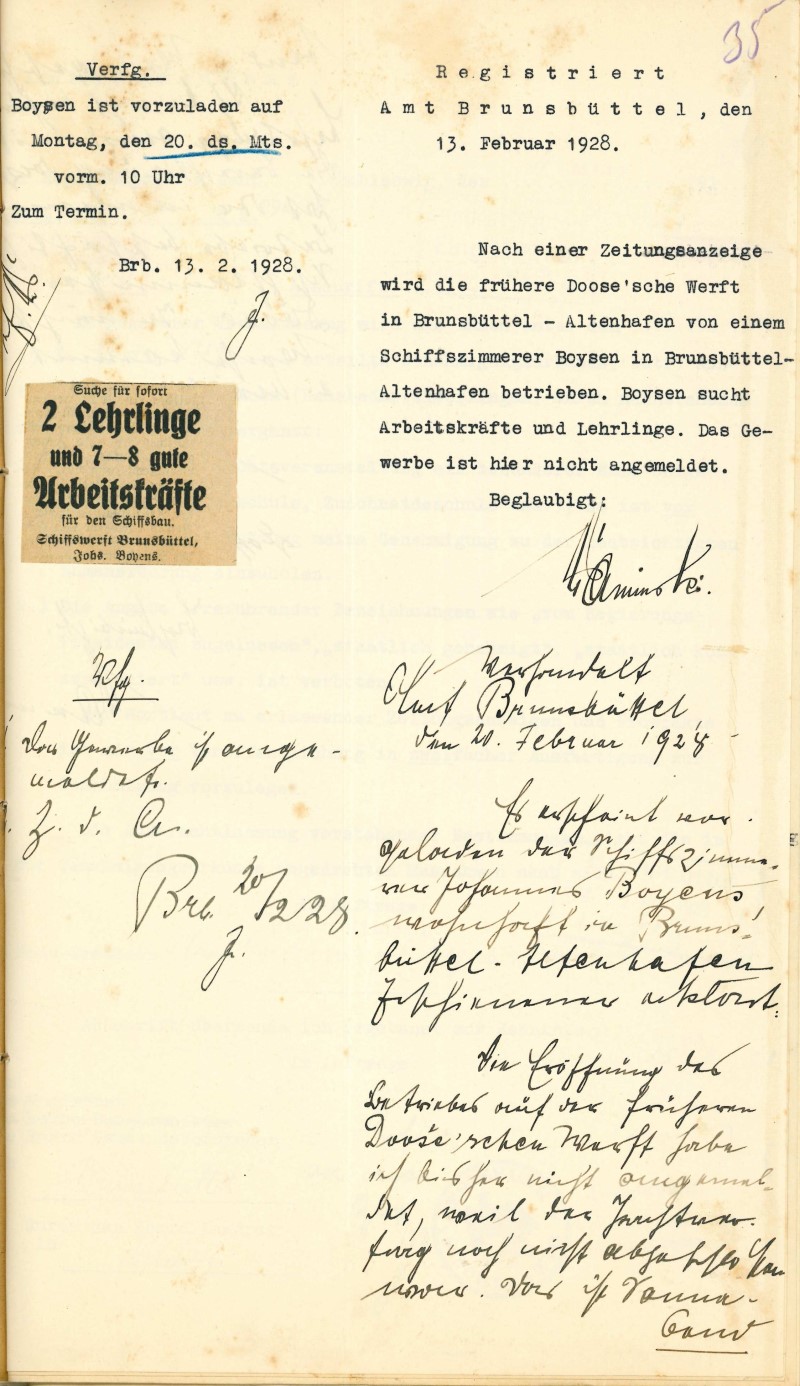 35
Verfg.
Boysen ist vorzuladen auf
Montag, den 20. ds. Mts.
vorm. 10 Uhr
Zum Termin.
Brb. 13. 2. 1928.
J.
Suche für sofort
2 Lehrlinge
und 7—8 gute
Arbeitskräfte
für den Schiffsbau.
Schiffswerft Brunsbüttel,
Johs. Boyens.
Vfg.
Das Gewerbe ist ange-
meldet.
Z. d. A.
Brb. 20/2 28.
J.
Registriert
Amt Brunsbüttel, den
13. Februar 1928.
Nach einer Zeitungsanzeige
wird die frühere Doose'sche Werft
in Brunsbüttel - Altenhafen von einem
Schiffszimmerer Boysen in Brunsbüttel-
Altenhafen betrieben. Boysen sucht
Arbeitskräfte und Lehrlinge. Das Ge-
werbe ist hier nicht angemeldet.
Beglaubigt:
Verhandelt
Amt Brunsbüttel
den 20. Februar 1928
Es erscheint vor-
geladen der Schiffszimme-
rer Johannes Boyens
wohnhaft in Bruns-
büttel-Altenhafen
Erschienener erklärt:
Die Eröffnung des
Betriebes auf der früheren
Doose'schen Werft habe
ich bisher nicht angemel-
det, weil der Pachtver-
trag noch nicht abgeschlossen
war. Das ist Sonna-
bend